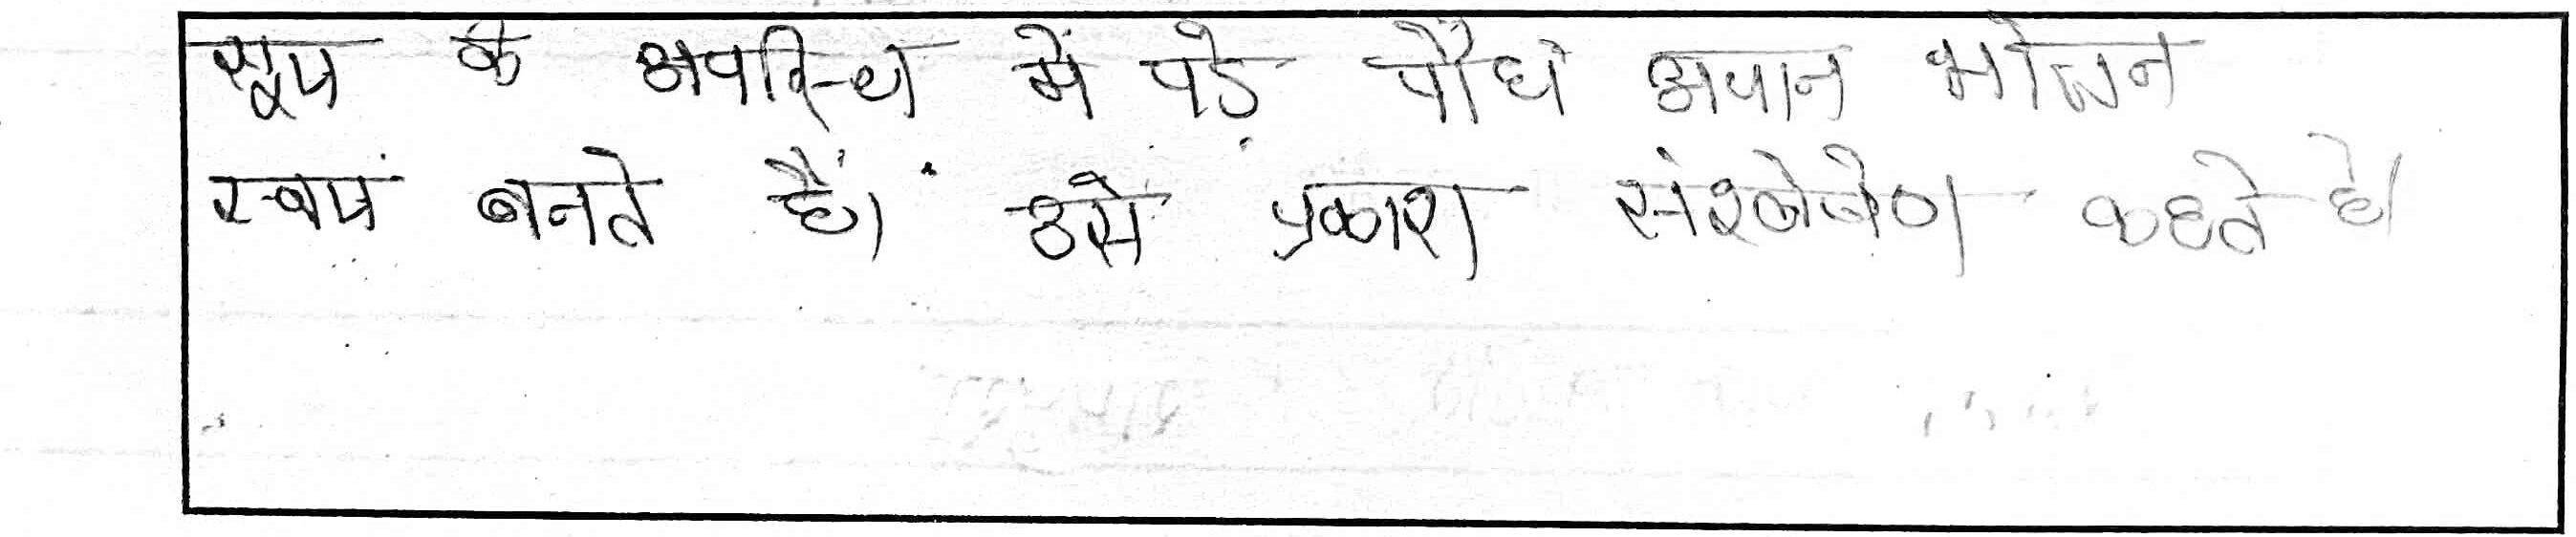 सूय के अपस्थि में पडे़ पौधे अपान भोजन
स्वयं बनते हैं। उसे प्रकाश संश्लेषेण कहते है।